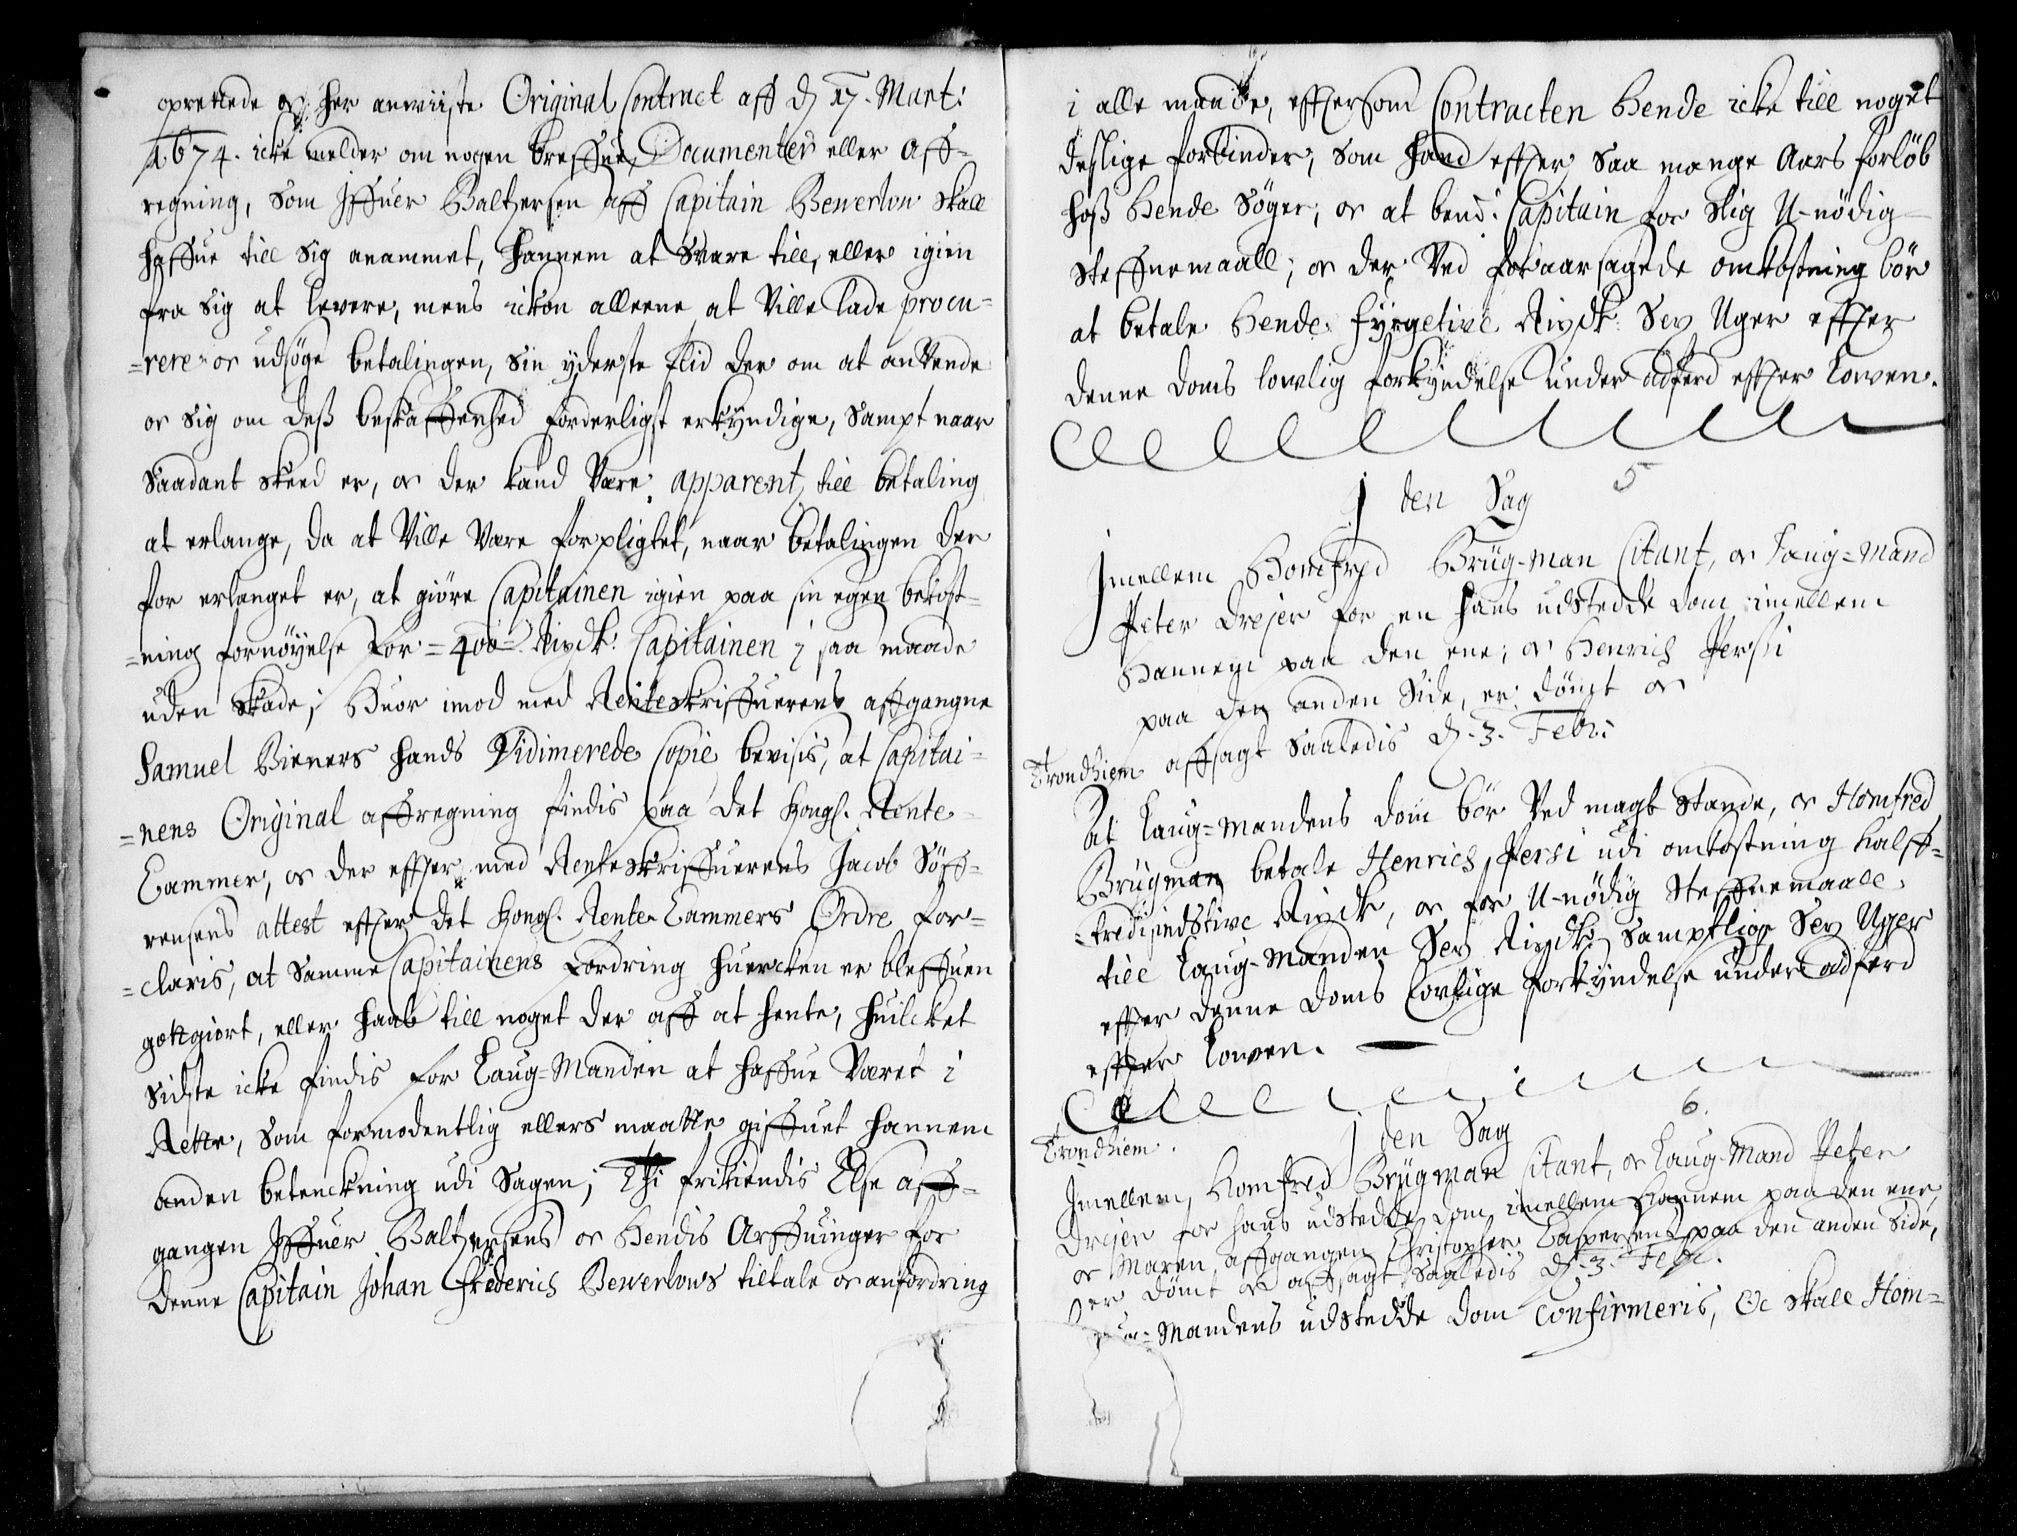 oprettede oc her anwiiste Original Contract aff d 17. Mart:
1674. icke melder om nogen breffue, Documenter eller aff-
regning, som Iffuer Baltzersen aff Capitain Bewerlow skall
haffue till sig anammet, hannem at svare till, eller igien
fra sig at levere, mens ickon alleene at ville lade procu-
=rere oc udsöge betalingen, sin yderste flid der om at anvende
oc sig om dess beskaffenhed forderligst erkyndige, sampt naar
saadant skeed er, oc der kand være apparentz till betaling
at erlange, da at ville være forpligtet, naar betalingen der
for erlanget er, at giöre Capitainen igien paa sin egen bekost-
=ning fornöyelse for =400= Rixdlr: Capitainen i saa maade
uden skade; Huor imod med Renteskriffuerens affgangne
Samuel Wieners hands Vidimerede Copie bevisis, at Capitai-
=nens Original affregning findis paa det Kongl. Rente-
Cammer, oc der effter med Renteskriffuerens Jacob Söff-
rensens attest effter det Kongl. Rente Cammers Ordre for-
=claris, at samme Capitainens fordring huercken er bleffuen
gottgiort, eller haab till noget der aff at hente, huilcket
sidste icke findis for Laug=Manden at haffue været i
Rette, som formodentlig ellers maatte giffuet hannem
anden betenckning udi Sagen; Thi frikiendis Else aff-
gangen Iffuer Baltzersens oc Hendis Arffuinger for
denne Capitain Johan Friderich Bewerlows tiltale oc anfordring
i alle maade, efftersom Contracten Hende icke till noget
deslige forbinder, som hand effter saa mange Aars forlöb
hoss Hende Söger, oc at bend: Capitain for slig U-nödig
Steffnemaall, oc der ved foraarsagede omkostning bör
at betale Hende fyrgetive Rixdlr: Sex Uger effter
denne doms lowlig forkyndelse under adferd effter Lowen.
5
I den Sag
Imellem Homfred Brüg-man Citant, oc Laug=Mand
Peter Dreyer for en hans udstedde dom imellem
Hannem paa den ene, oc Henrich Persi
paa den anden Side, er dömt oc
Trondhiem affsagt saaledis d. 3. Febr:
At Laug=Mandens dom bör ved magt stande, oc Homfred
Brügman betale Henrich Persi udi omkostning halff-
=tredisindstive Rixdlr, oc for U-nödig Steffnemaall
till Laug-Manden Sex Rixdlr: samptlige Sex Uger
effter denne doms lovlige forkyndelse under adferd
effter Lowen.
6.
I den Sag
Trondhiem.
Imellem Homfred Brügman Citant, oc Laug-Mand Peter
Dreyer for hans udstedde dom, imellem Hannem paa den ene,
oc Maren affgangen Christopher Caspersens paa den anden side,
er dömt oc affsagt saaledis d. 3. Febr.
Laug=Mandens udstedde dom Confirmeris, Oc skall Hom-